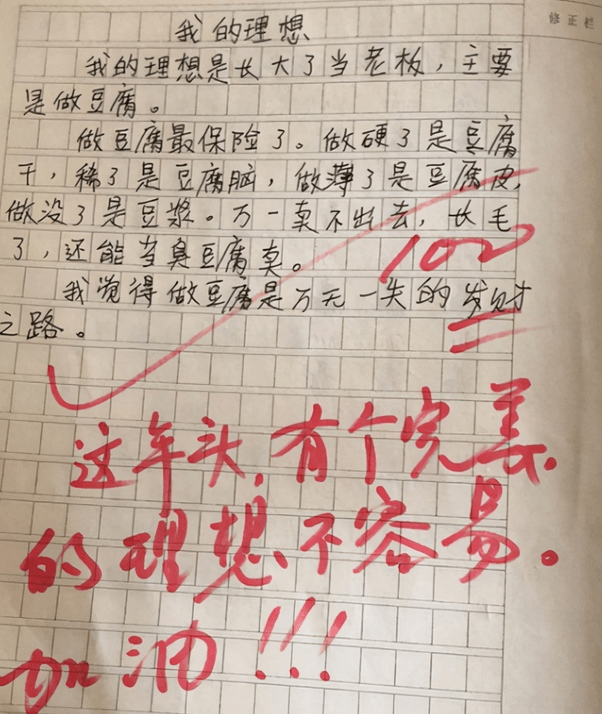 修正栏
我的理想
我的理想是长大了当老板，主要
是做豆腐。
做豆腐最保险了。做硬了是豆腐
干，稀了是豆腐脑，做薄了是豆腐皮，
做没了是豆浆。万一卖不出去，长毛
了，还能当臭豆腐卖。
我觉得做豆腐是万无一失的发财
之路。
100
这年头，有个完美
的理想不容易。
加油!!!